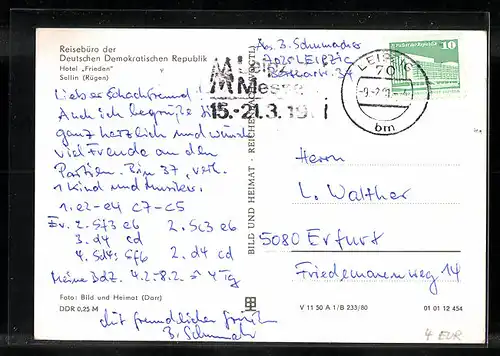 Reisebüro der
Deutschen Demokratischen Republik
Hotel „Frieden“
Sellin (Rügen)
Lieber Schachfreund
Auch ich begrüße
ganz herzlich und
viel Freude an den
Partien. Bin 37, verh.
1 Kind und Musiker.
1. e2-e4 c7-c5
Ev. 2. Sf3 e6 2. Sc3 e6
3. d4 cd
4. Sd4: Sf6 2. d4 cd
Meine Bdz. 4.2.-8.2. = 4 Tg
Foto: Bild und Heimat (Darr)
DDR 0,25 M
mit freundlichen
B. Schumacher
BILD UND HEIMAT · REICHENBACH
Abs. B. Schumacher
7025 LEIPZIG
MM Leipziger
Messe
15.-21.3.19
LEIPZIG
70
bm
10
Herrn
L. Walther
5080 Erfurt
Friedemannweg 14
V 11 50 A 1/B 233/80
01 01 12 454
4 EUR